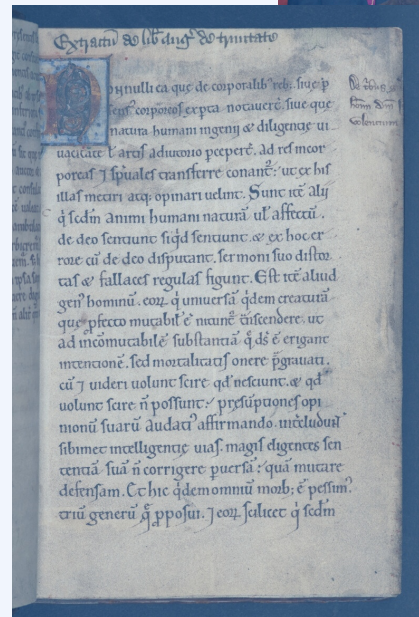 Extractū de lib̄ aug᷒ de trinitate
Nonnulli ea que de corporalib᷒ reb᷒ siue p̄
sens᷒ corporeos exp̄ta notauerē. siue que
natura humani ingenij & diligentie ui
uacitate ł artis adiutorio peepert̄. ad res incor
poreas ⁊ spūales transferre conant᷑: ut ex his
illas metiri atq; opinari uelint. Sunt itē alij
q̇ sc̄dm animi humani naturā uł affectū.
de deo sentiunt siq̇d sentiunt. & ex hoc er
rore cū de deo disputant. sermoni suo distor
tas & fallaces regulas figunt. Est itē aliud
gen᷒ hominū. eoꝝ q̇ uniuersā q̇dem creaturā
que ꝓfecto mutabił ē nitunt᷑ t̄nscendere. ut
ad incōmutabilē substantiā q̄ ds̄ ē erigant
intentionē. sed mortalitatis onere p̄grauati.
cū ⁊ uideri uolunt scire qd̄ nesciunt. & qd̄
uolunt scire n̄ possunt: presūptiones opi
nionū suarū audati᷒ affirmando. int̄cludunt
sibimet intelligentie uias. magis eligentes sen
tentiā suā n̄ corrigere ꝑuersā: quā mutare
defensam. Et hic q̇dem omniū morb᷒ ē pessim᷒
triū generū q̄ ꝓposui. ⁊ eoꝝ scilicet q̇ sc̄dm